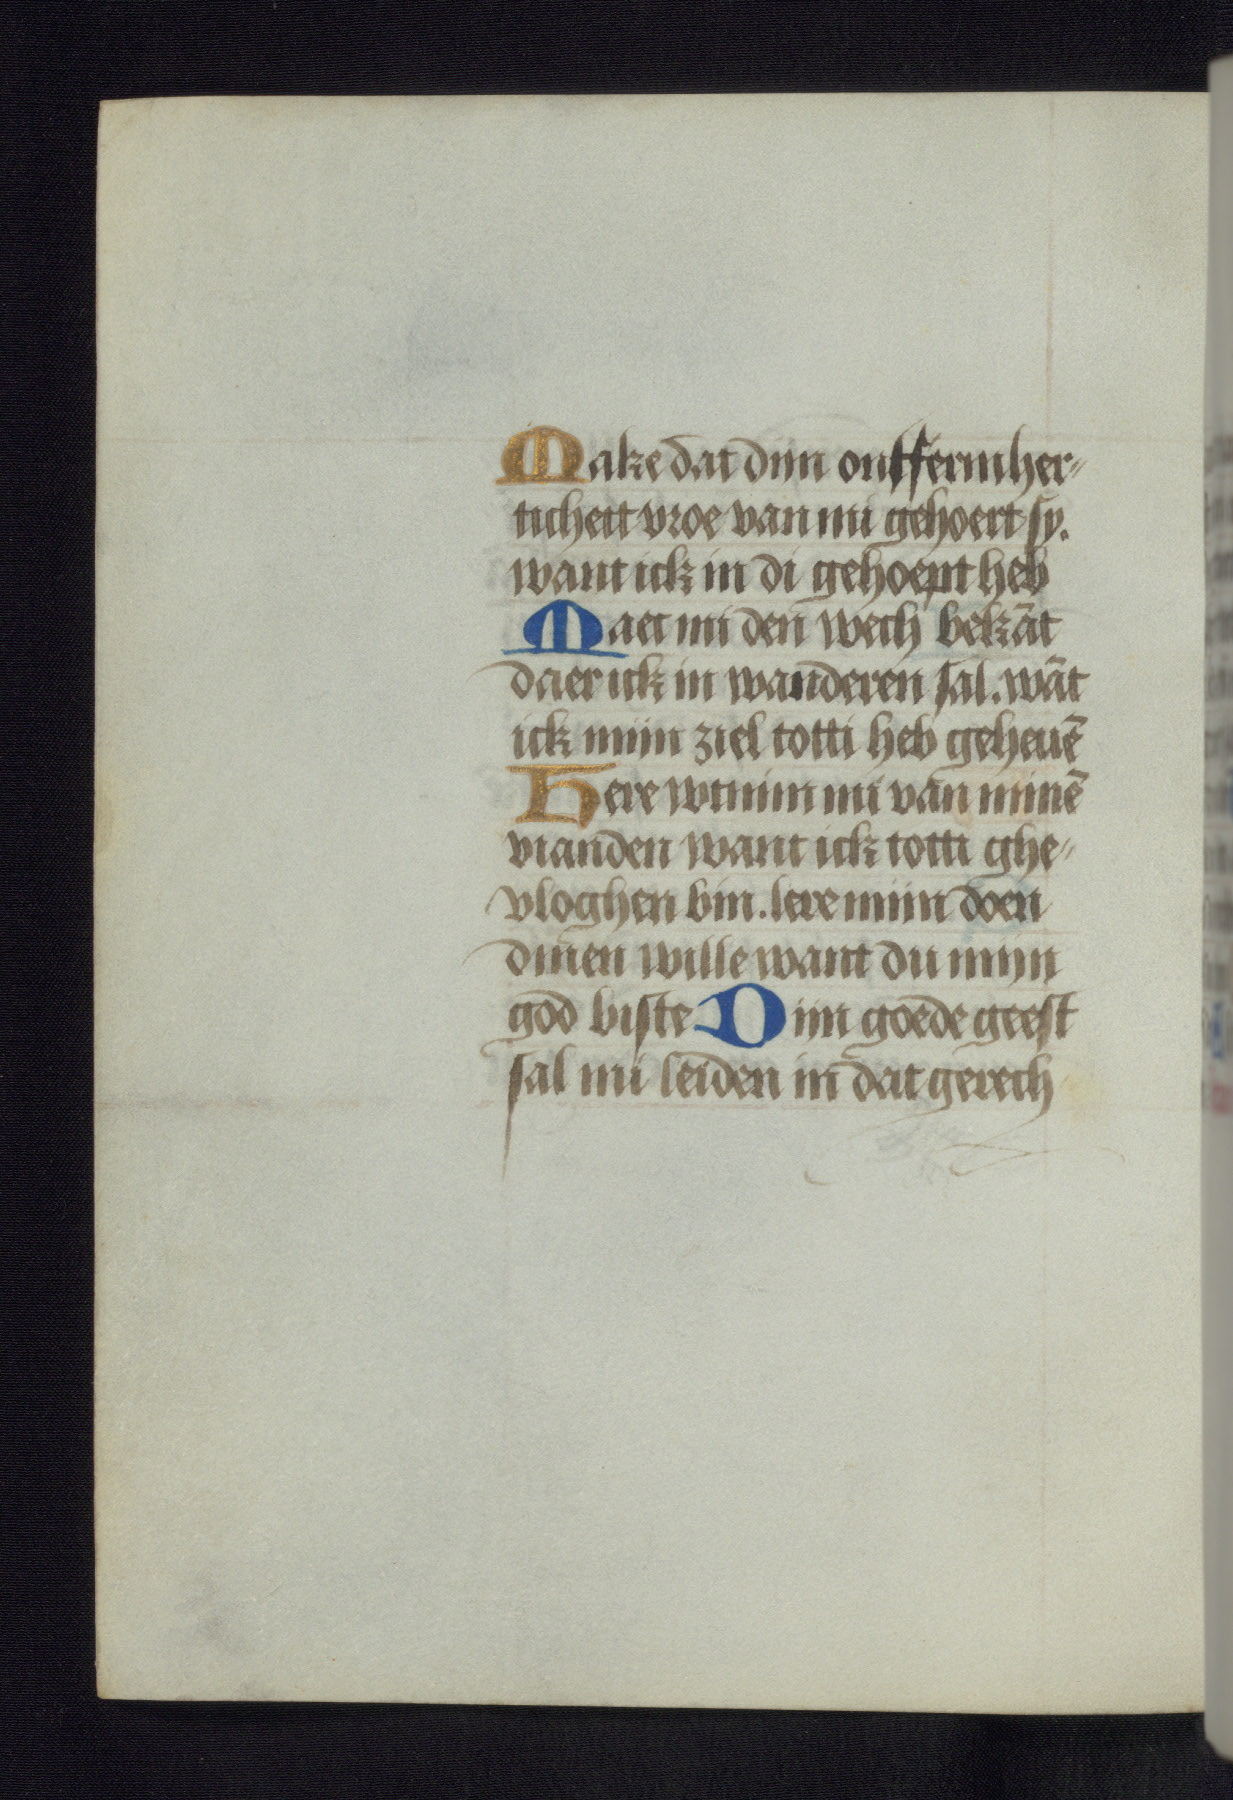 Make dat dijn ontfermher-
ticheit vroe van mi gehoert sy.
want ick in di gehoept heb
Maet mi den wech bekāt
daer ick in wanderen sal. wāt
ick mijn ziel totti heb geheuē
Here wtnim mi van minē
vianden want ick totti ghe-
vloghen bin. lere mijn doen
dinen wille want du mijn
god biste Dijn goede geest
sal mi leiden in dat gerech